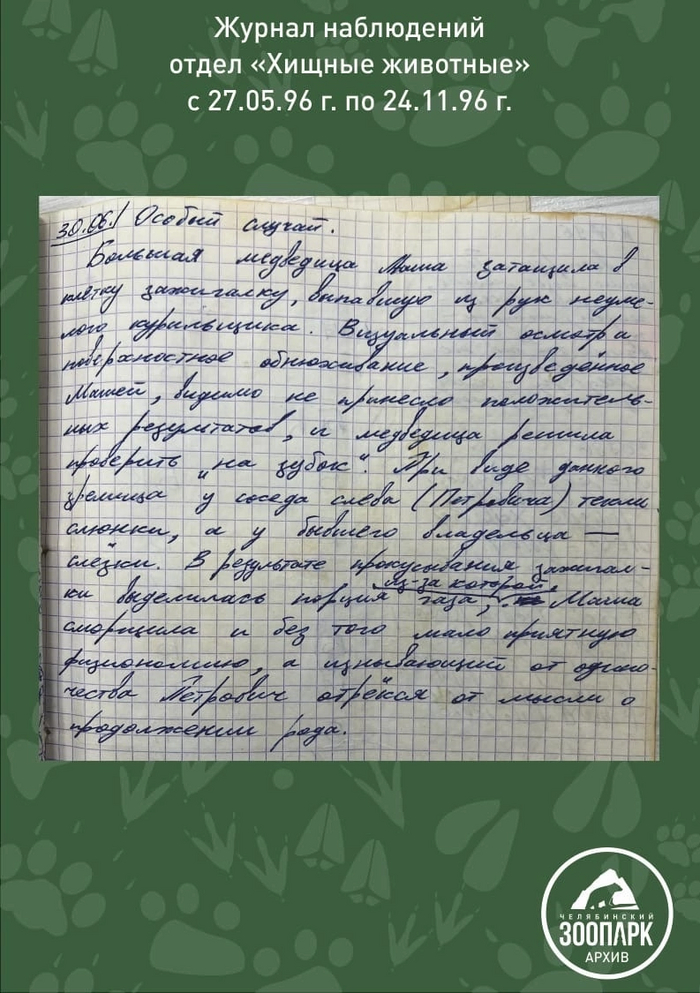 Журнал наблюдений
отдел «Хищные животные»
с 27.05.96 г. по 24.11.96 г.
30.06./ Особый случай.
Большая медведица Маша затащила в
клетку зажигалку, выпавшую из рук неуме-
лого курильщика. Визуальный осмотр и
поверхностное обнюхивание, произведённое
Машей, видимо не принесло положитель-
ных результатов, и медведица решила
проверить „на зубок“. При виде данного
зрелища у соседа слева (Петровича) текли
слюнки, а у бывшего владельца —
слёзки. В результате прокусывания зажигал-
ки выделилась порция газа, из-за которой Маша
сморщила и без того мало приятную
физиономию, а изнывающий от одино-
чества Петрович отрёкся от мысли о
продолжении рода.
ЧЕЛЯБИНСКИЙ
ЗООПАРК
АРХИВ